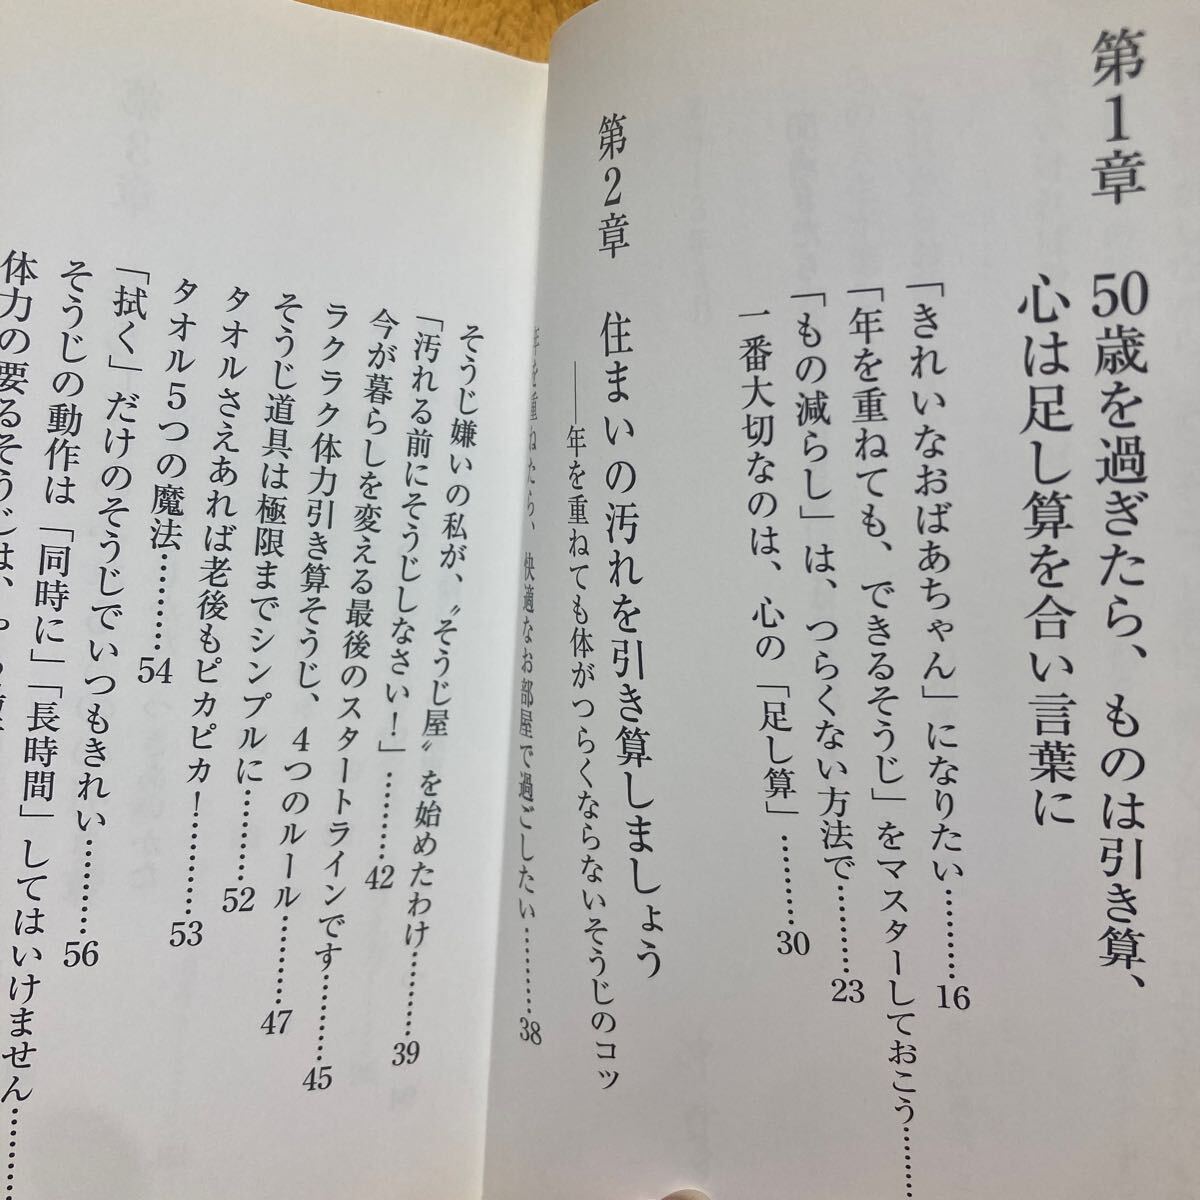 第1章　50歳を過ぎたら、ものは引き算、
心は足し算を合い言葉に
「きれいなおばあちゃん」になりたい………16
「年を重ねても、できるそうじ」をマスターしておこう………
「もの減らし」は、つらくない方法で………23
一番大切なのは、心の「足し算」………30
第2章　住まいの汚れを引き算しましょう
――年を重ねても体がつらくならないそうじのコツ
年を重ねたら、快適なお部屋で過ごしたい………38
そうじ嫌いの私が、〝そうじ屋〟を始めたわけ………39
「汚れる前にそうじしなさい！」………42
今が暮らしを変える最後のスタートラインです………45
ラクラク体力引き算そうじ、4つのルール………47
そうじ道具は極限までシンプルに………52
タオルさえあれば老後もピカピカ！………53
タオル5つの魔法………54
「拭く」だけのそうじでいつもきれい………56
そうじの動作は「同時に」「長時間」してはいけません………
体力の要るそうじは、